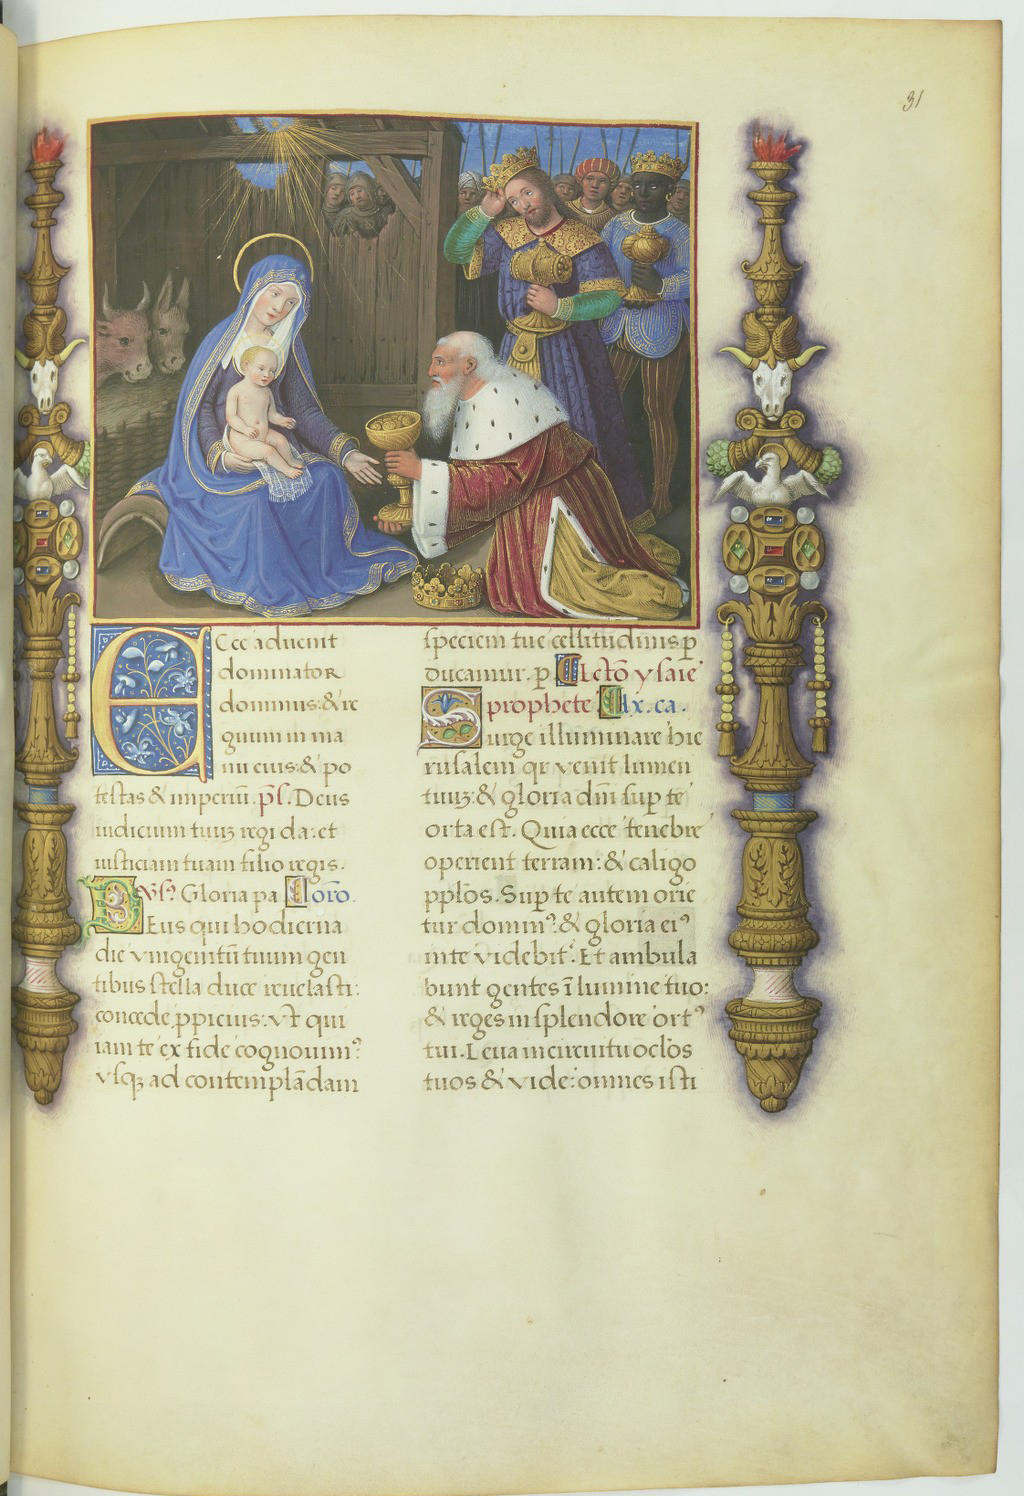 31
Ecce aduenit
dominator
dominus: & re
gnum in ma
nu eius: & po
testas & imperiũ. p̄s. Deus
iudicium tuuʒ regi da: et
iusticiam tuam filio regis.
Gloria pa Oro.
Deus qui hodierna
die vnigenitũ tuum gen
tibus stella duce reuelasti:
concede ꝓpicius: vt qui
iam te ex fide cognouimꝰ
vsqꝫ ad contemplãdam
speciem tue cellitudinis p
ducamur. p. Lectõ ysaie
prophete lx. ca.
Surge illuminare hie
rusalem qr venit lumen
tuuʒ: & gloria dñi suꝑ te
orta est. Quia ecce tenebre
operient terram: & caligo
pplõs. Suꝑ te autem orie
tur dominꝰ: & gloria eiꝰ
in te videbitʳ. Et ambula
bunt gentes ĩ lumine tuo:
& reges in splendore ortꝰ
tui. Leua in circuitu oclõs
tuos & vide: omnes isti